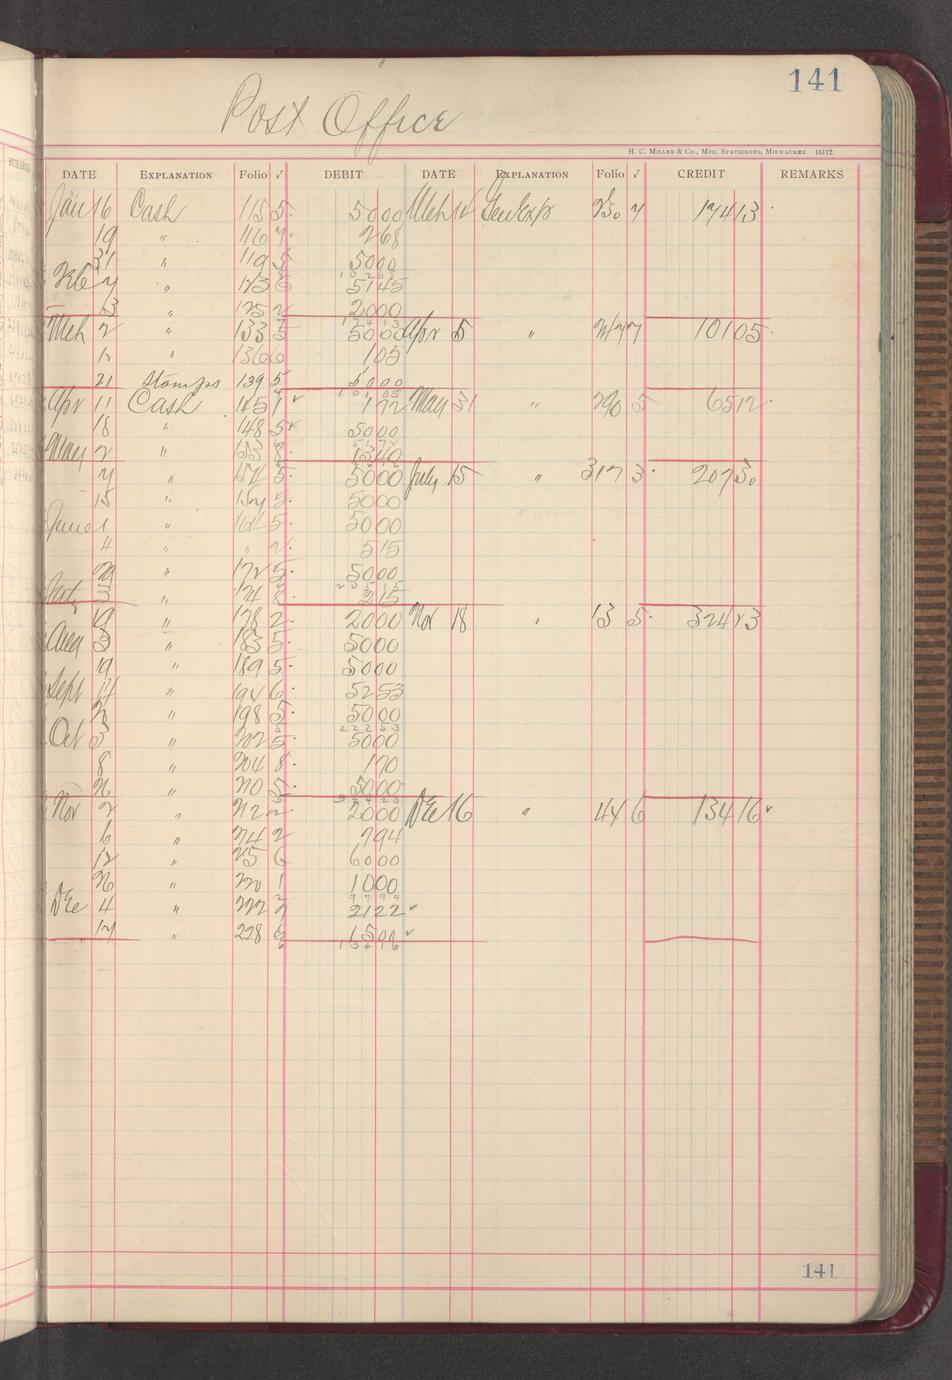 141
Post Office
H. C. MILLER & CO., MFG. STATIONERS, MILWAUKEE. 16112.
DATE EXPLANATION Folio √ DEBIT DATE EXPLANATION Folio √ CREDIT REMARKS
Jan 16 Cash 115 5 5000 Mch 12 Gen Exp 230 7 17413
19 " 116 7 268
31 " 119 5 5000
Feb 7 " 123 6 5145
13 " 125 2 2000
Mch 2 " 133 5 5000 Apr 5 " 247 7 10105
12 " 136 6 105
21 Stamps 139 5 5000
Apr 11 Cash 145 1 172 May 31 " 290 5 6512
18 " 148 5 5000
May 2 " 153 8 1340
7 " 154 5 5000 July 15 " 317 3 20730
15 " 157 5 5000
June 1 " 161 5 5000
4 " " 2 515
29 " 172 5 5000
3 " 174 8 215
19 " 178 2 2000 Nov 18 " 13 5 32423
Aug 3 " 183 5 5000
19 " 189 5 5000
Sept 14 " 194 6 5253
" 198 5 5000
Oct 3 " 202 5 5000
8 " 204 8 170
26 " 210 5 5000
Nov 2 " 212 2 2000 Dec 16 " 44 6 13416
6 " 214 2 794
12 " 215 6 6000
26 " 220 1 1000
Dec 4 " 222 2122
14 " 228 6 1500
13416
141